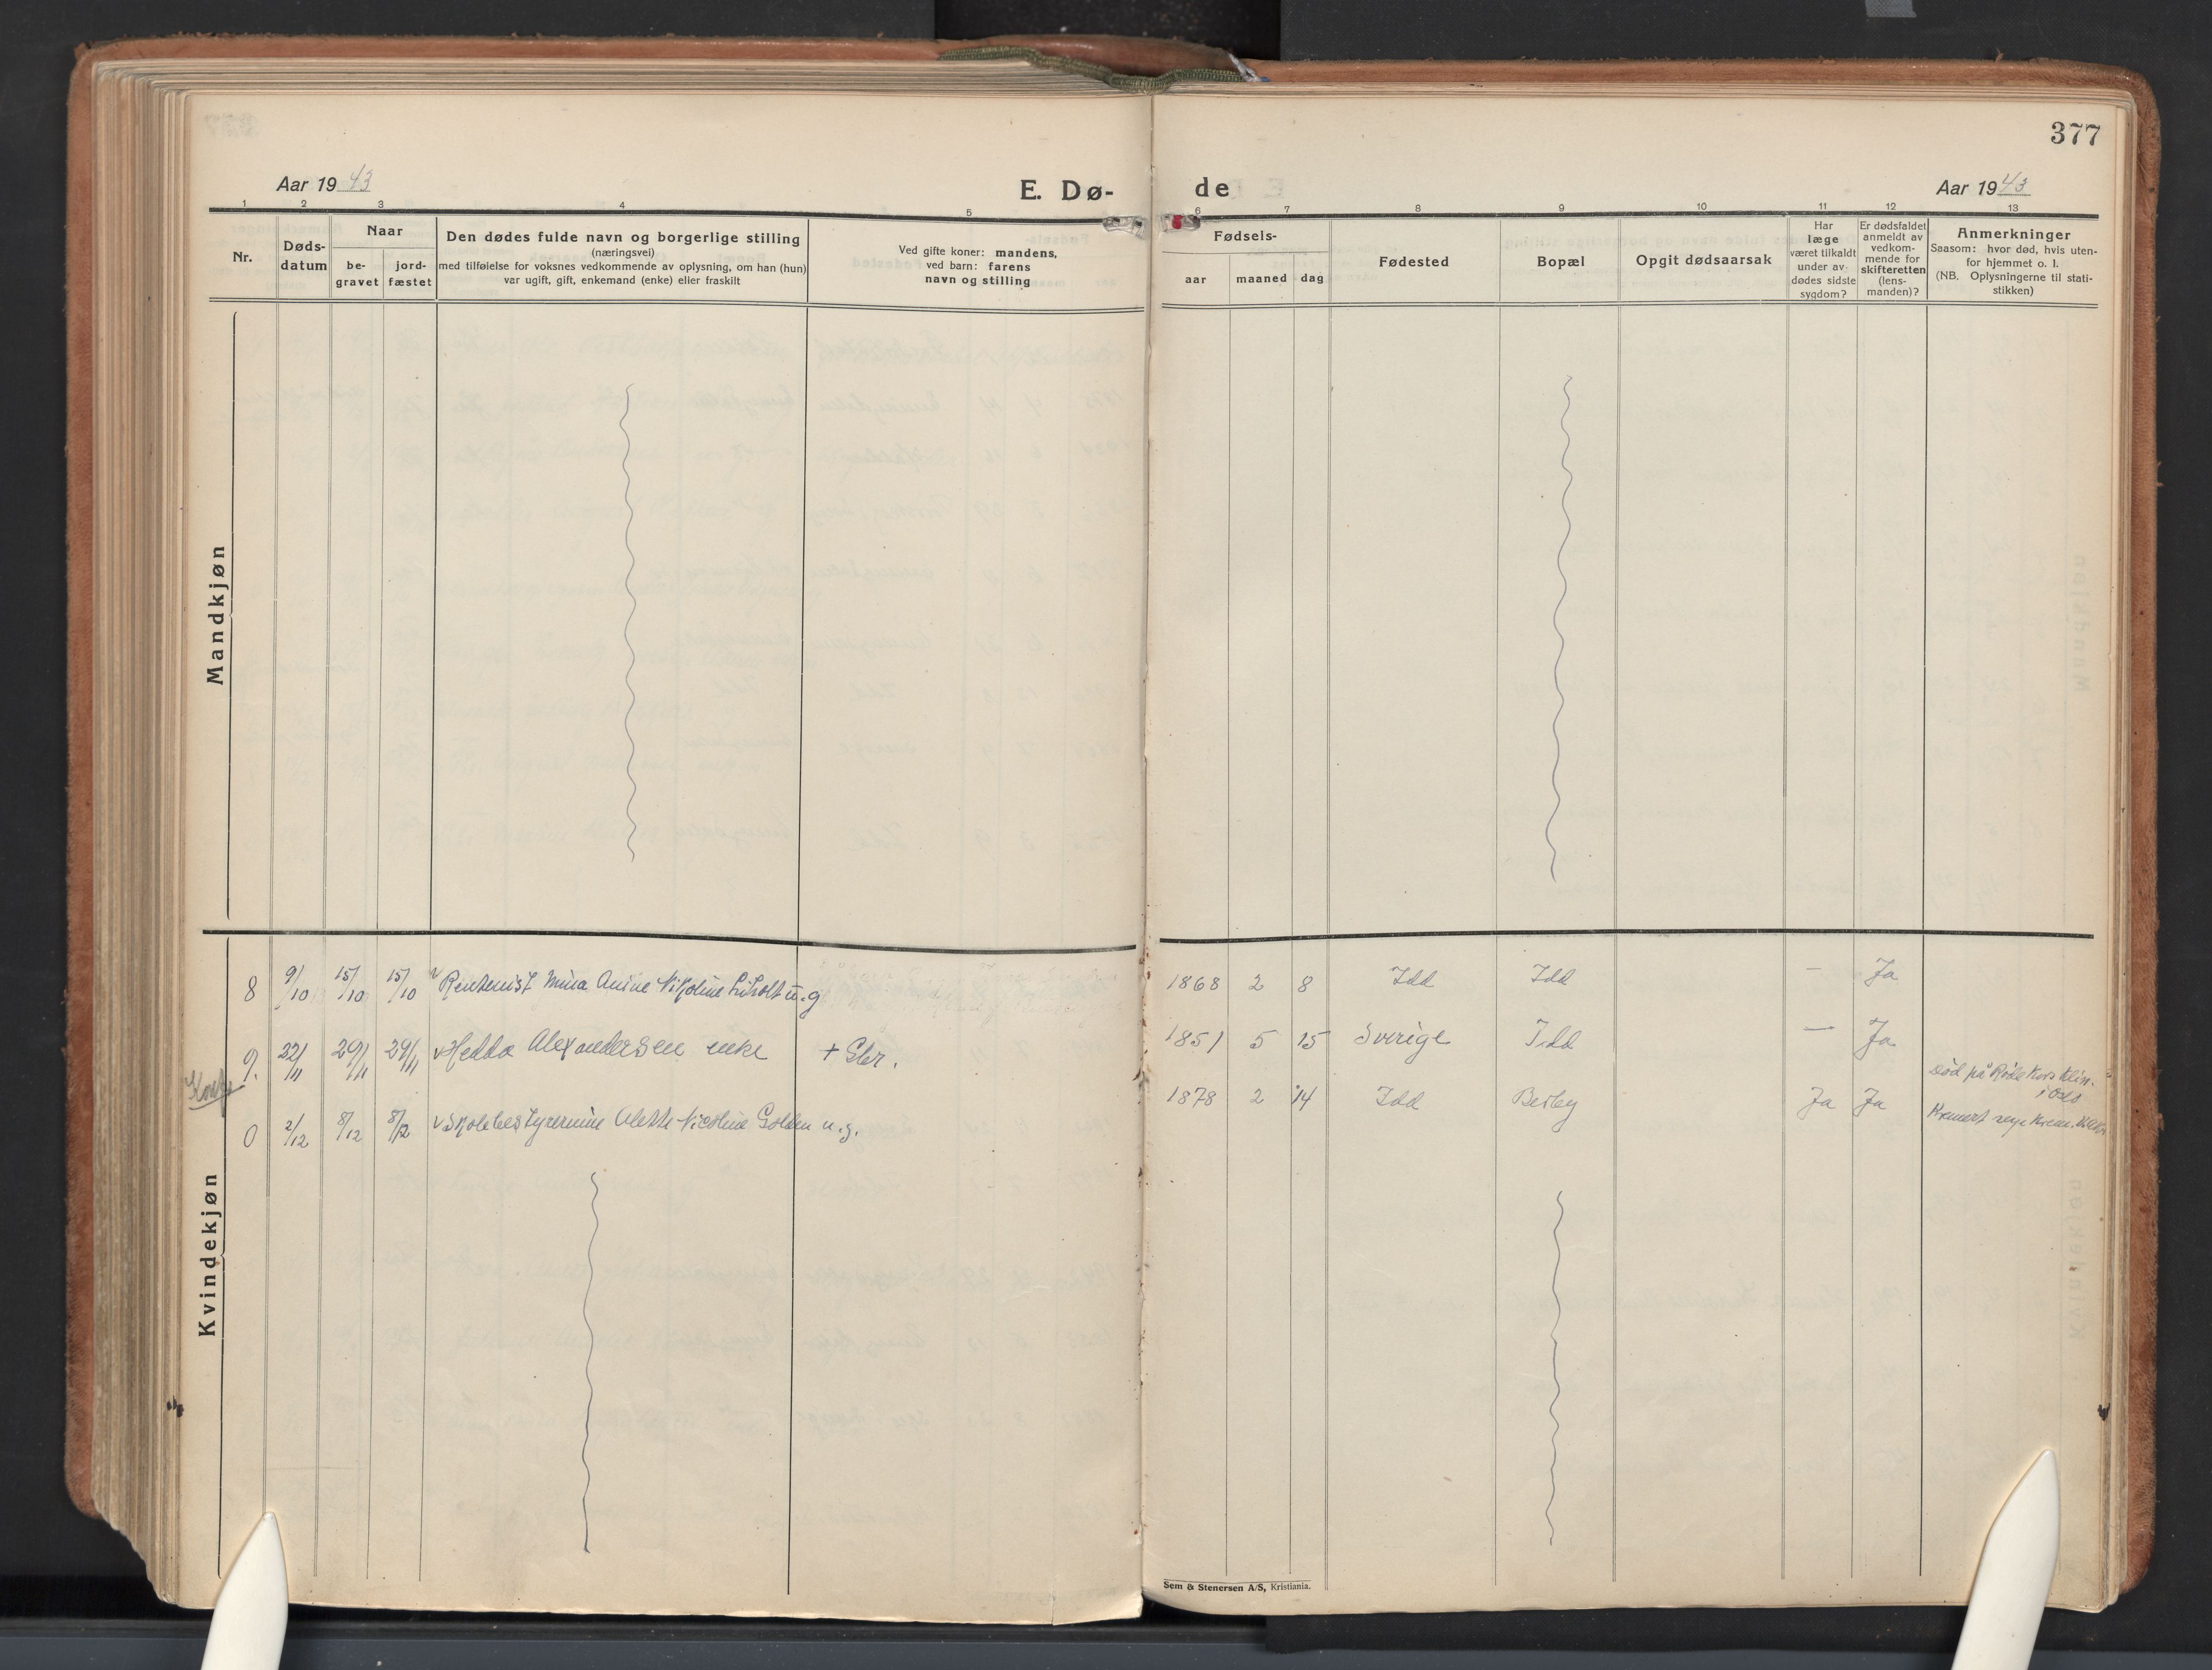 377
Aar 1943
E. Dø-
de
Aar 1943
1 2 3 4 5 6 7 8 9 10 11 12 13
Nr.
Døds-
datum
Naar
be-
gravet
jord-
fæstet
Den dødes fulde navn og borgerlige stilling
(næringsvei)
med tilføielse for voksnes vedkommende av oplysning, om han (hun)
var ugift, gift, enkemand (enke) eller fraskilt
Ved gifte koner: mandens,
ved barn: farens
navn og stilling
Fødsels-
aar maaned dag
Fødested
Bopæl
Opgit dødsaarsak
Har
læge
været tilkaldt
under av-
dødes sidste
sygdom?
Er dødsfaldet
anmeldt av
vedkom-
mende for
skifteretten
(lens-
manden)?
Anmerkninger
Saasom: hvor død, hvis uten-
for hjemmet o. l.
(NB. Oplysningerne til stati-
stikken)
Mandkjøn
Kvindekjøn
8 9/10 15/10 15/10 Rentenist Mina Anine Nikoline u.g 1868 2 8 Idd Idd — Ja
9. 22/11 29/11 29/11 Hedda Alexandersen enke + Eler. 1851 5 15 Sverige Idd — Ja
0 2/12 8/12 8/12 Skolebestyrerinne Alette Nicoline Golden u.g. 1878 2 14 Idd Berby Ja Ja
død på Røde Kors Klin.
i Oslo
Sem & Stenersen A/S, Kristiania.